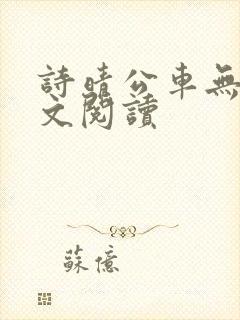 詩晴公車無
文閱讀
蘇億